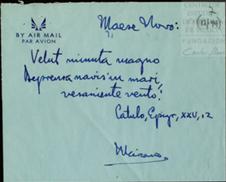 BY AIR MAIL
PAR AVION
Maese Novo:
Velut minuta magno
Deprensa navis in mari,
vesaniente vento!
Catulo, Epigr, XXV, 12